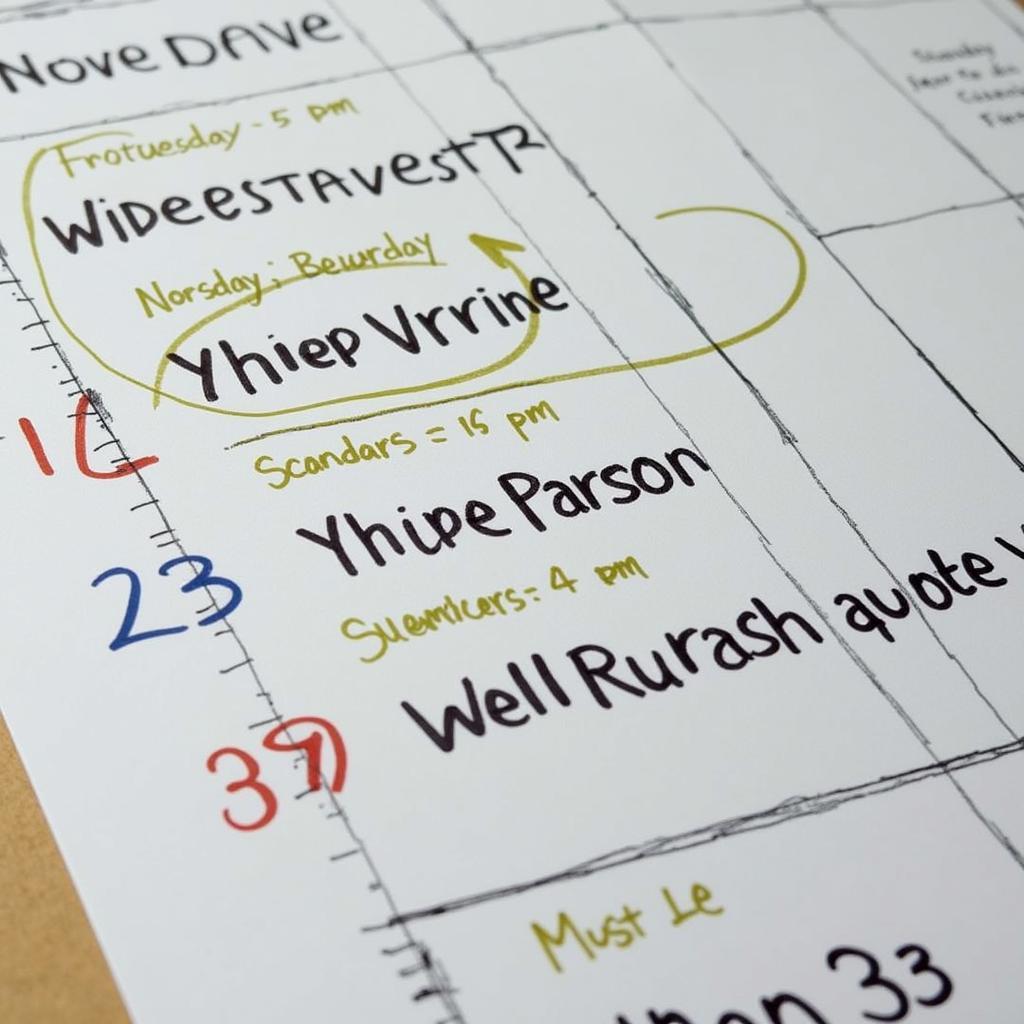 Nove DAve
Frotuesday - 5 pm
WiDeesTAvesT T2
Norsday; Bewurday
Yhiep Vrrine
16
Scandars = 15 pm
Yhipe Parson
23
Suemlcers: 4 pm
Well Rurash quote
39
Must Le
33